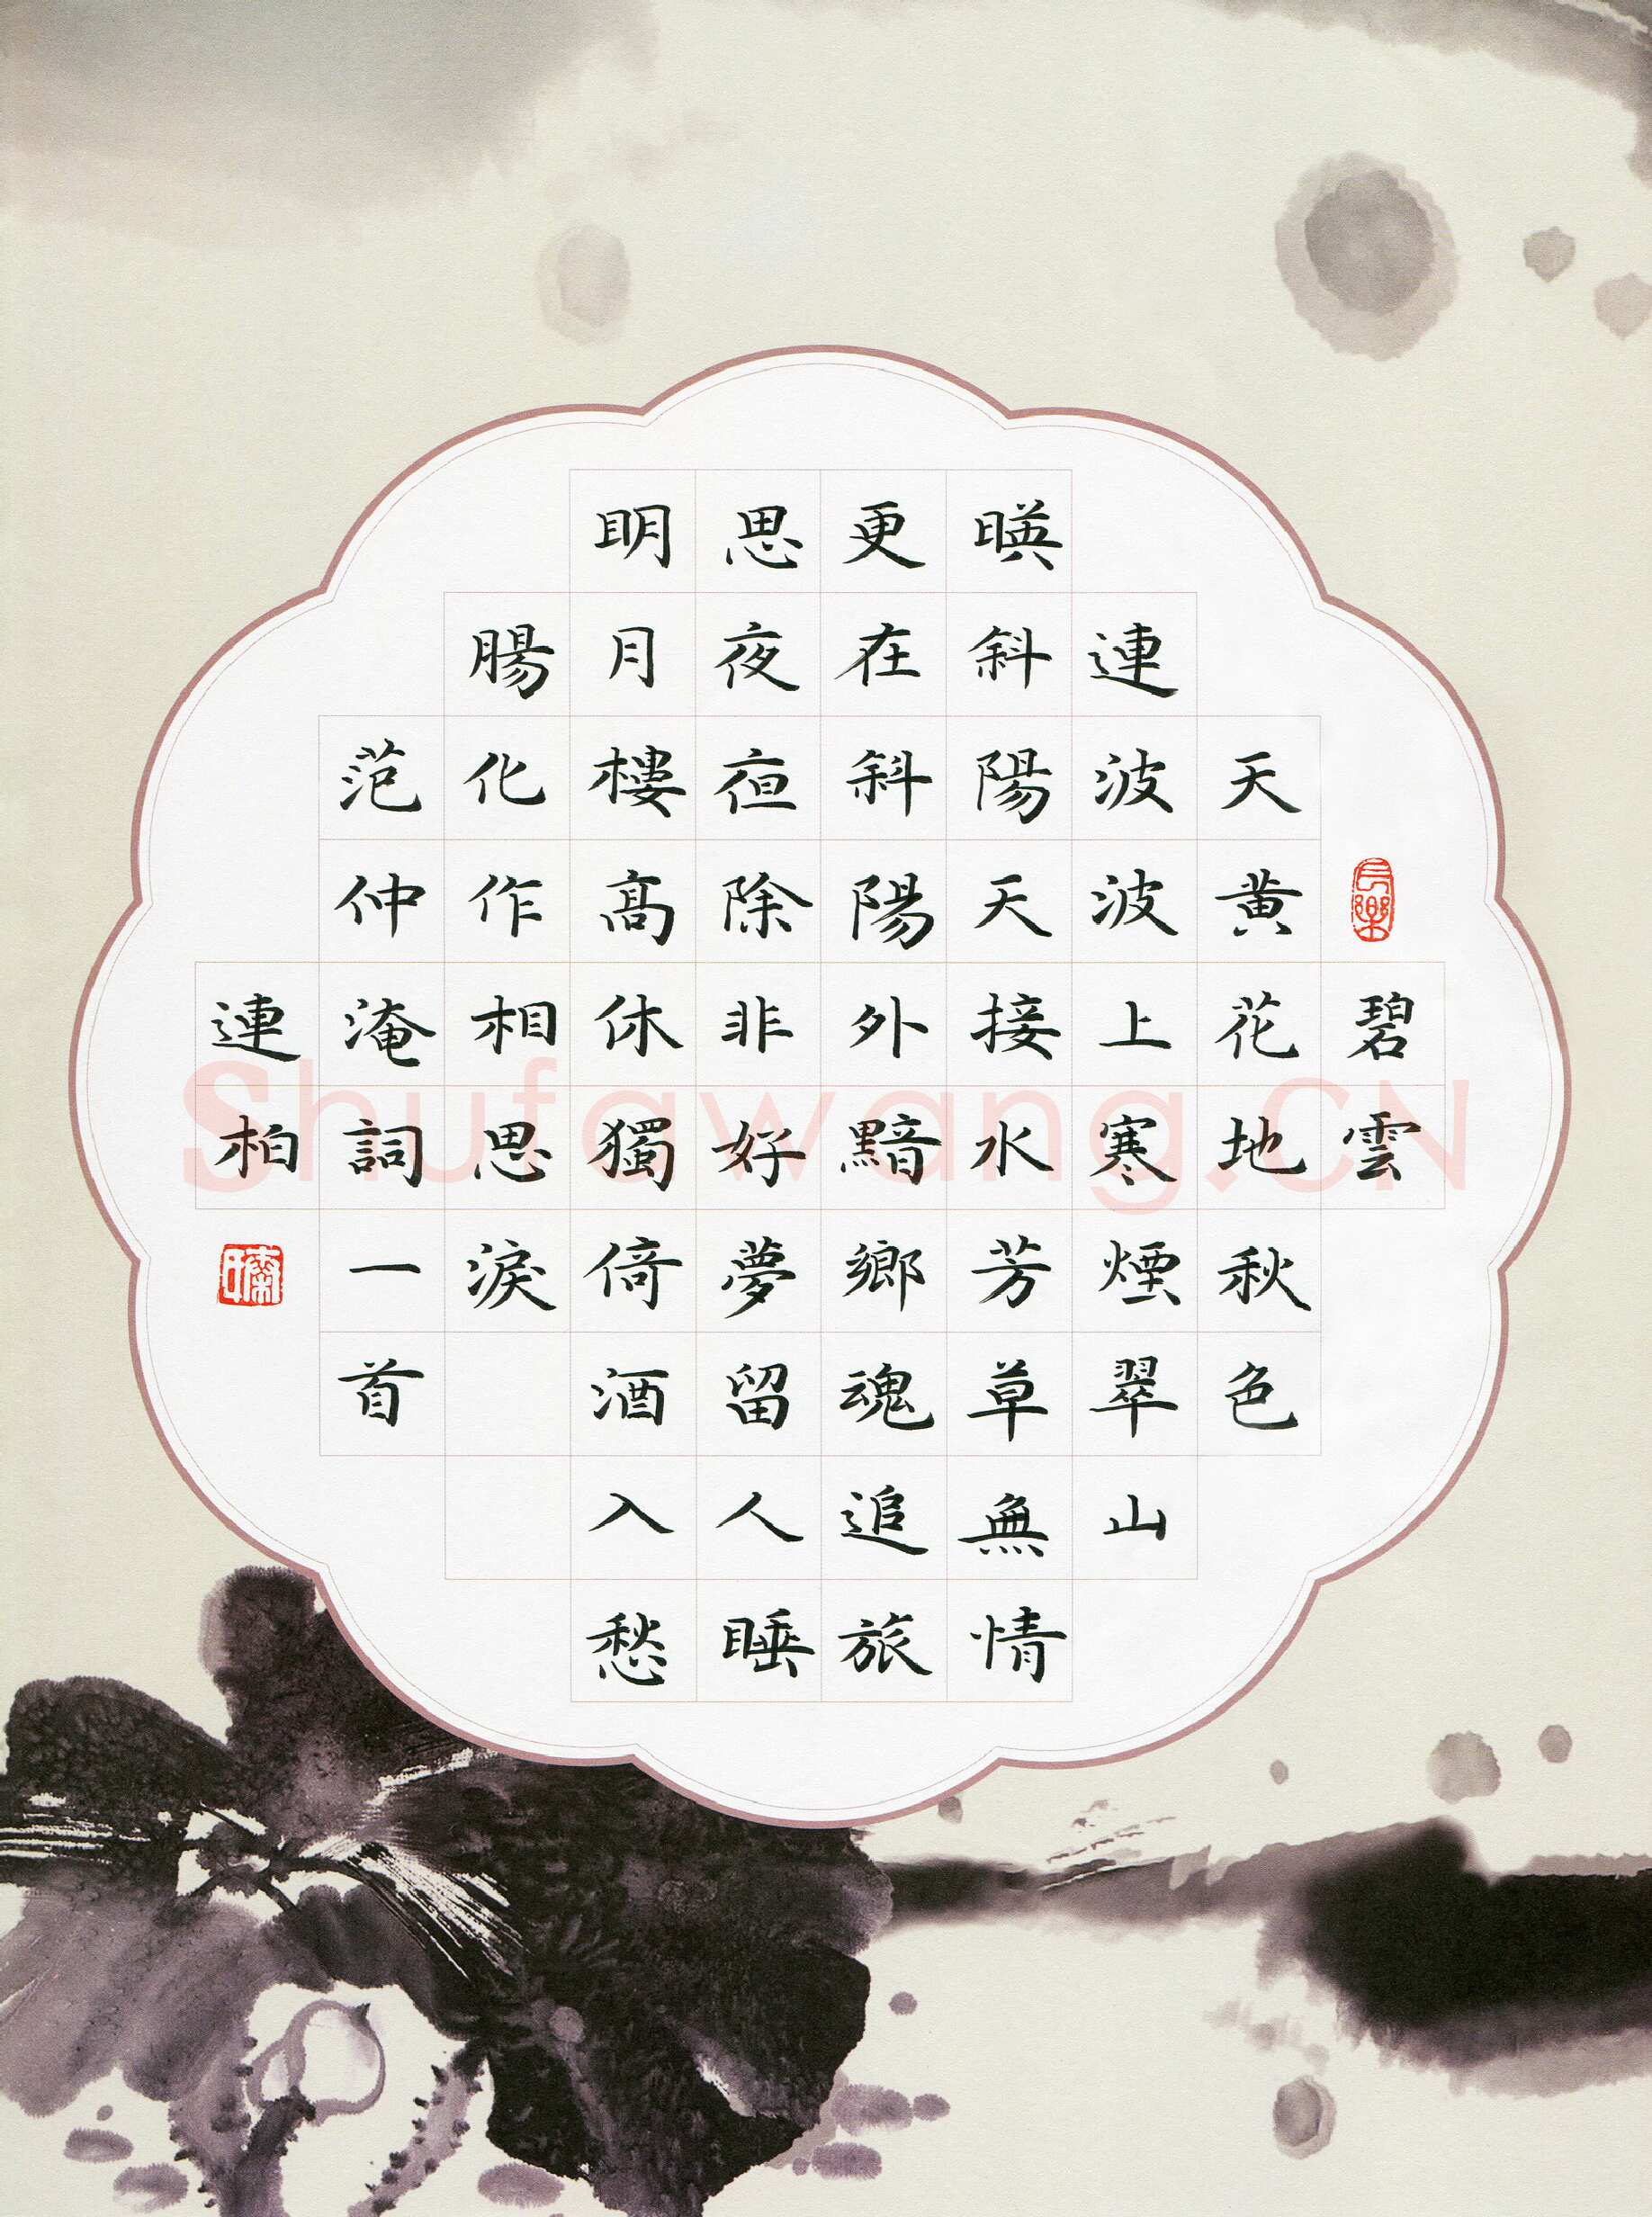 碧雲
天黄花地秋色
連波波上寒煙翠山
暎斜陽天接水芳草無情
更在斜陽外黯鄉魂追旅
思夜夜除非好夢留人睡
明月樓高休獨倚酒入愁
腸化作相思淚
范仲淹詞一首
連柏
長樂
Shufawang.CN